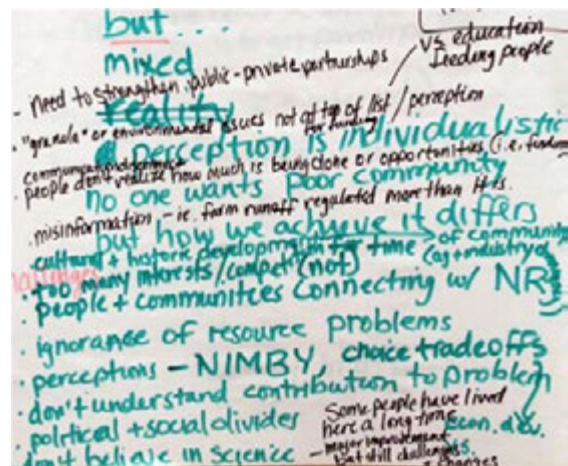 but...
mixed
vs education
feeding people
- need to strengthen public-private partnerships
reality
• "granola" or environmental issues not at top of list / perception
for funding
perception is individualistic
• people don't realize how much is being done or opportunities (i.e.
no one wants poor community
• misinformation - ie. farm runoff regulated more than it is.
but how we achieve it differs
• cultural + historic development for time of community
(ag + industry)
• too many interests/compet (not)
• people + communities connecting w/ NR
• ignorance of resource problems
• perceptions - NIMBY, choice tradeoffs
• don't understand contribution to problem
• political + social divides
Some people have lived
here a long time
econ. dev.
don't believe in science - major improvement
but still challenges